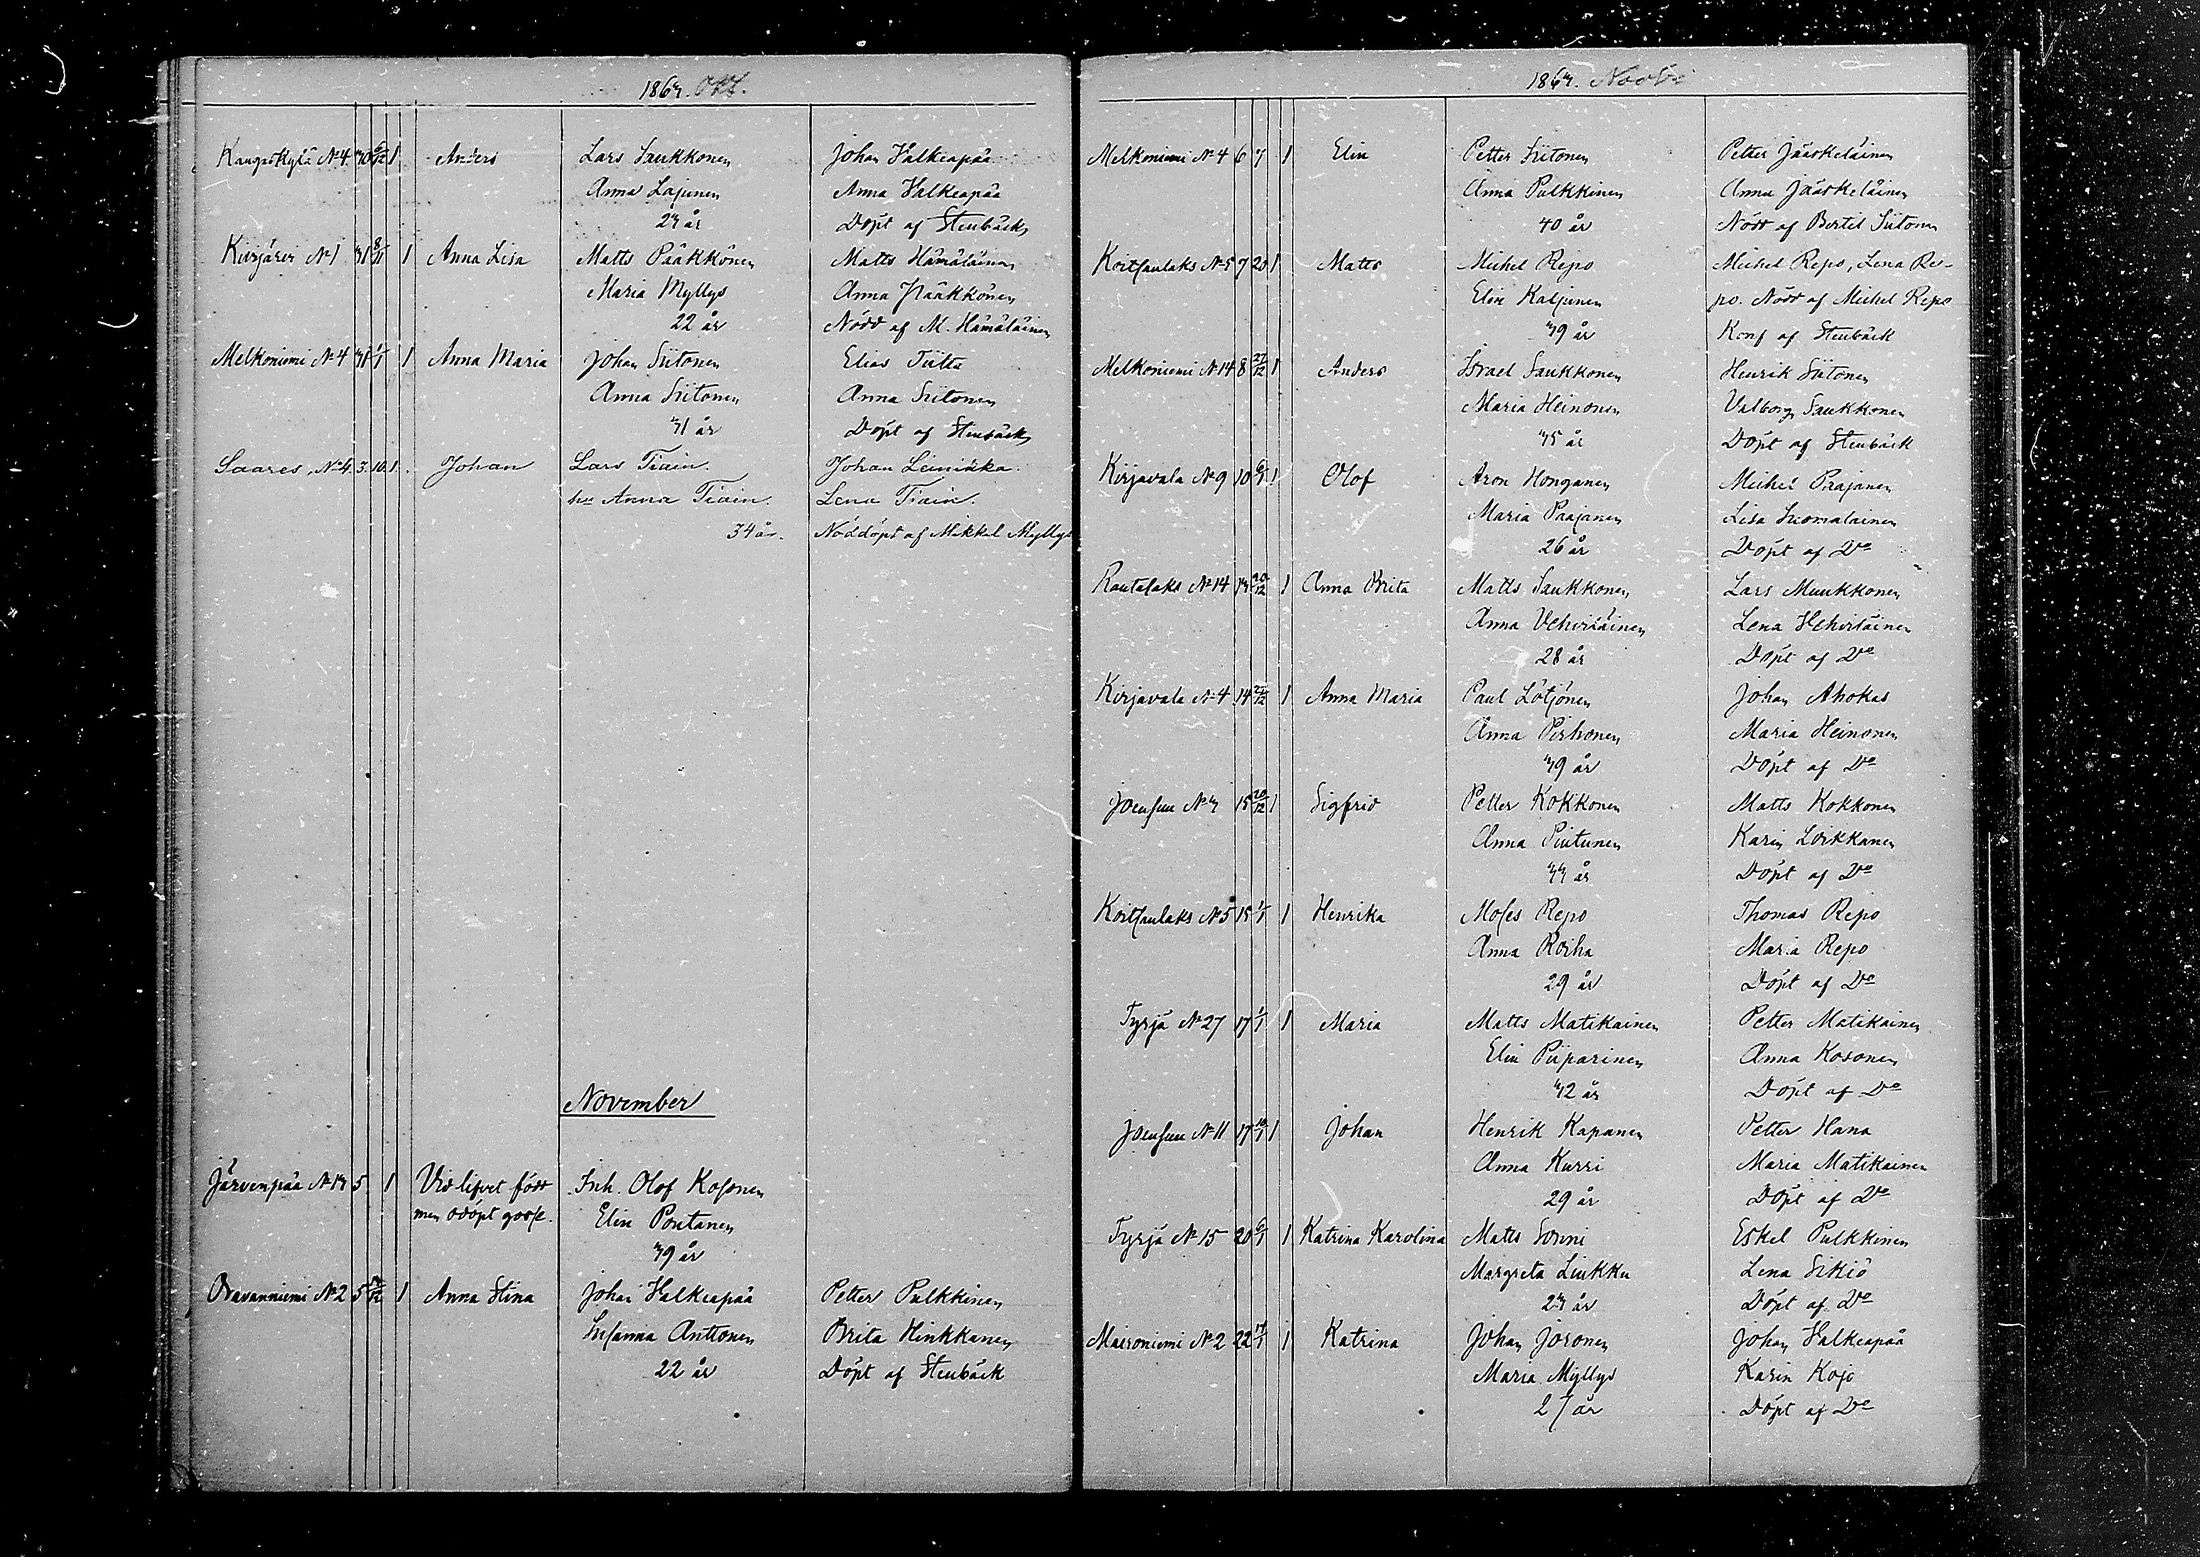 1863. Okt.
Kangaskylä No 4 30 6/12 1 Anders Lars Saukkonen Johan Valkeapää
Anna Lajunen Anna Valkeapää
23 år Döpt af Stenbäck
Kirjärei No 1 31 8/11 1 Anna Lisa Matts Pääkkönen Matts Hämäläinen
Maria Myllys Anna Pääkkönen
22 år Nödd af M. Hämäläinen
Melkoniemi No 4 31 1/1 1 Anna Maria Johan Siitonen Elias Tiilta
Anna Siitonen Anna Siitonen
31 år Döpt af Stenbäck
Saares, No 4. 3. 10. 1. Johan Lars Tiain. Johan Leinikka.
hu Anna Tiain. Lena Tiain.
34 år. Nöddöpt af Mikkel Myllys
November
Järvenpää No 13 5 1 Vid lifvet född Inh. Olof Kosonen
men odöpt gosse. Elin Pontanen
39 år
Oravaniemi No 2 5 1 Anna Stina Johan Valkeapää Petter Pulkkinen
Susanna Anttonen Brita Hinkkanen
22 år Döpt af Stenbäck
1863. Novbr
Melkoniemi No 4 6 7 1 Elin Petter Siitonen Petter Jääskeläinen
Anna Pulkkinen Anna Jääskeläinen
40 år Nödd af Bertil Siitonen
Koitsanlaks No 5 7 20 1 Matts Michel Repo Michel Repo, Lena Re-
Elin Kaljunen po. Nödd af Michel Repo
39 år Konf af Stenbäck
Melkoniemi No 14 8 27/12 1 Anders Israel Saukkonen Henrik Siitonen
Maria Heinonen Valborg Saukkonen
35 år Döpt af Stenbäck
Kirjavala No 9 10 6/1 1 Olof Aron Honganen Michel Paajanen
Maria Paajanen Lisa Suomalainen
26 år Döpt af Do
Rautalaks No 14 13 20/12 1 Anna Brita Matts Saukkonen Lars Muukkonen
Anna Vehviläinen Lena Vehviläinen
28 år Döpt af Do
Kirjavala No 4 14 27/12 1 Anna Maria Paul Lötjönen Johan Ahokas
Anna Pirhonen Maria Heinonen
39 år Döpt af Do
Joensuu No 3 15 20/12 1 Sigfrid Petter Kokkonen Matts Kokkonen
Anna Pintunen Karin Loikkanen
33 år Döpt af Do
Koitsanlaks No 5 15 1/1 1 Henrika Moses Repo Thomas Repo
Anna Roiha Maria Repo
29 år Döpt af Do
Tyrjä No 27 17 1/1 1 Maria Matts Matikainen Petter Matikainen
Elin Piiparinen Anna Kosonen
32 år Döpt af Do
Joensuu No 11 17 1 Johan Henrik Kapanen Petter Hana
Anna Kurri Maria Matikainen
29 år Döpt af Do
Tyrjä No 15 20 6/1 1 Katrina Karolina Matts Sonni Eskel Pulkkinen
Margreta Liukku Lena Sikiö
23 år Döpt af Do
Maironiemi No 2 22 1 Katrina Johan Joronen Johan Valkeapää
Maria Myllys Karin Kojo
27 år Döpt af Do